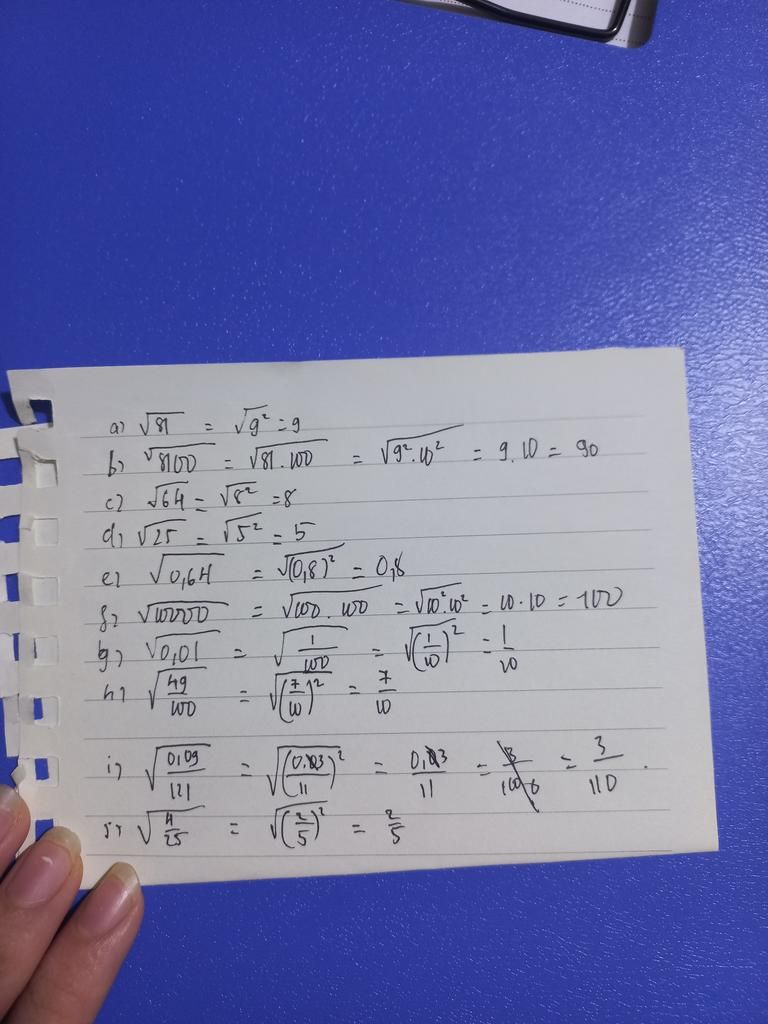 a) √81 = √9² = 9
b) √8100 = √81.100 = √9².10² = 9.10 = 90
c) √64 = √8² = 8
d) √25 = √5² = 5
e) √0,64 = √(0,8)² = 0,8
f) √10000 = √100.100 = √10².10² = 10.10 = 100
g) √0,01 = √1/100 = √(1/10)² = 1/10
h) √49/100 = √(7/10)² = 7/10
i) √0,09/121 = √(0,3/11)² = 0,3/11 = = 3/110.
j) √4/25 = √(2/5)² = 2/5